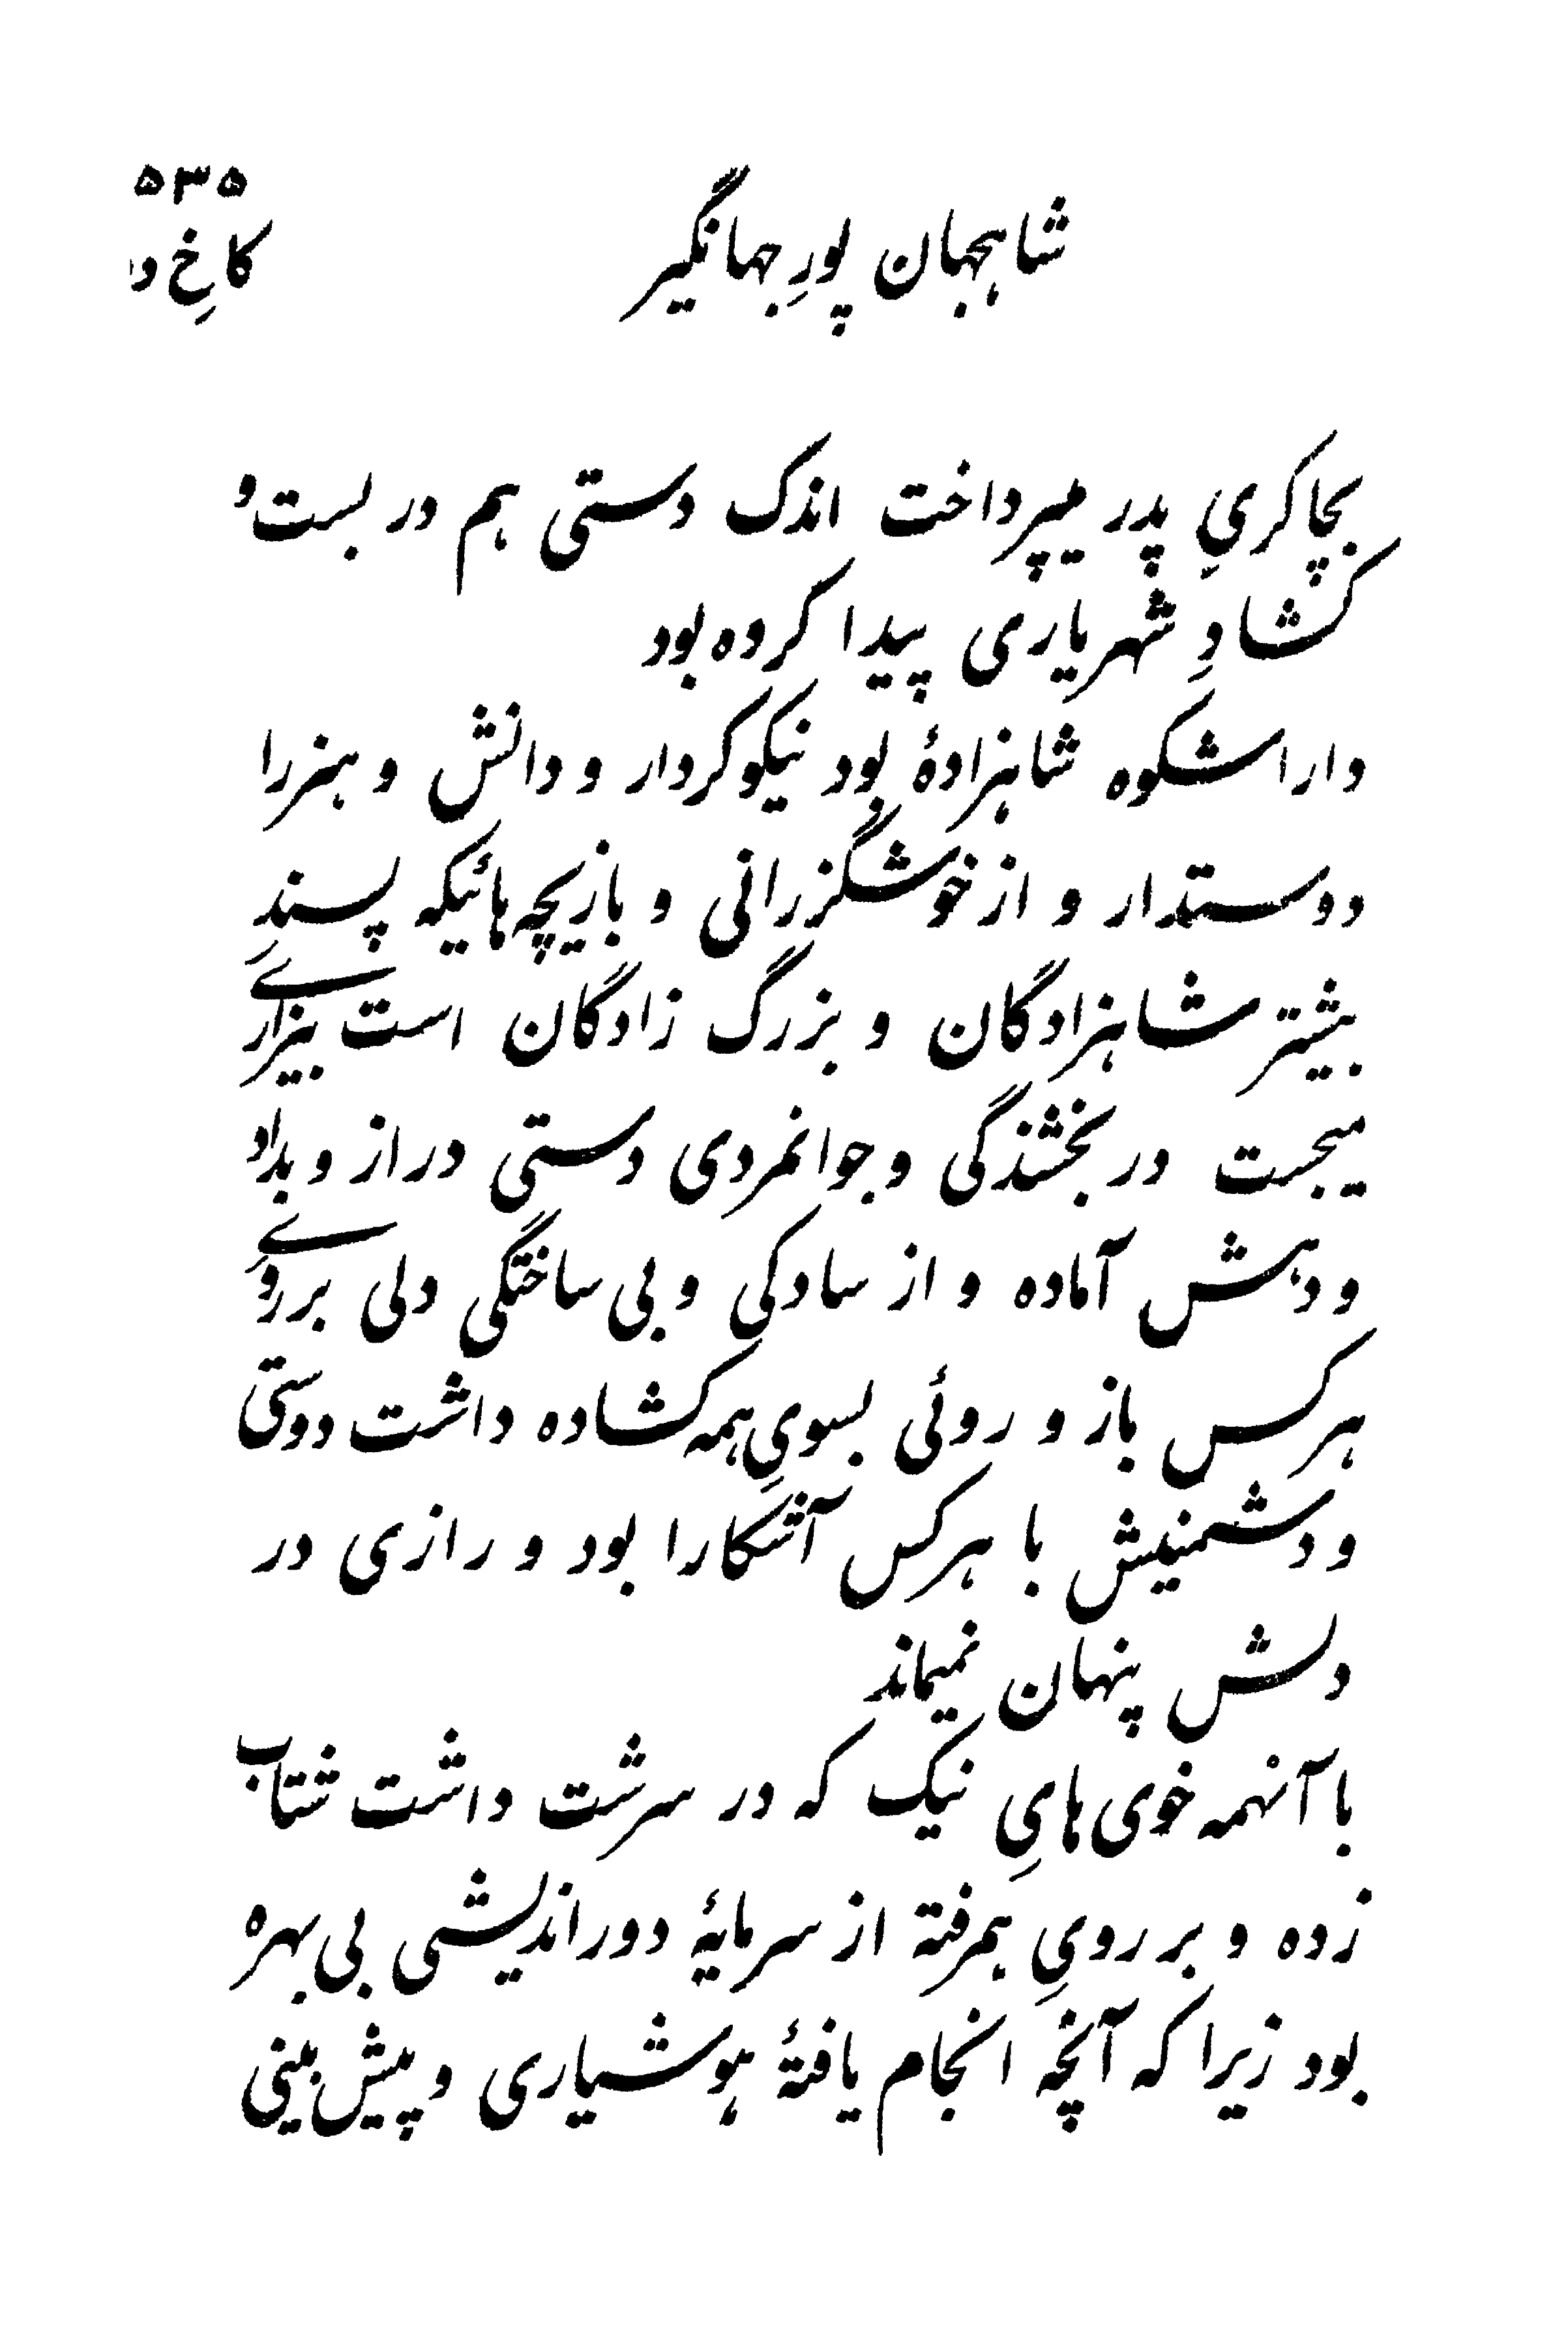 ۵۳۵
شاهجهان پورِ جهانگیر
کاخِ
بچاکریِ پدر میپرداخت اندک دستی هم در بست و
گشادِ شهریاری پیدا کرده بود
داراشکوه شاهزادهٔ بود نیکوکردار و دانش و هنر را
دوستدار و از خوشگزرانی و بازیچه هائیکه پسندِ
بیشتر شاهزادگان و بزرگ زادگان است بیزاری
میجست در بخشندگی و جوانمردی دستی دراز و بداد
و دهش آماده و از سادگی و بی ساختگی دلی بر روے
هرکس باز و روئی بسویِ همه کشاده داشت دوستی
و دشمنیش با هرکس آشکارا بود و رازی در
دلش پنهان نمیماند
با آنهمه خوی هایِ نیک که در سرشت داشت شتاب
زده و بر رویِ همرفته از سرمایهٔ دوراندیشی بی بهره
بود زیرا که آنچه انجام یافتهٔ هوشیاری و پیش بینی